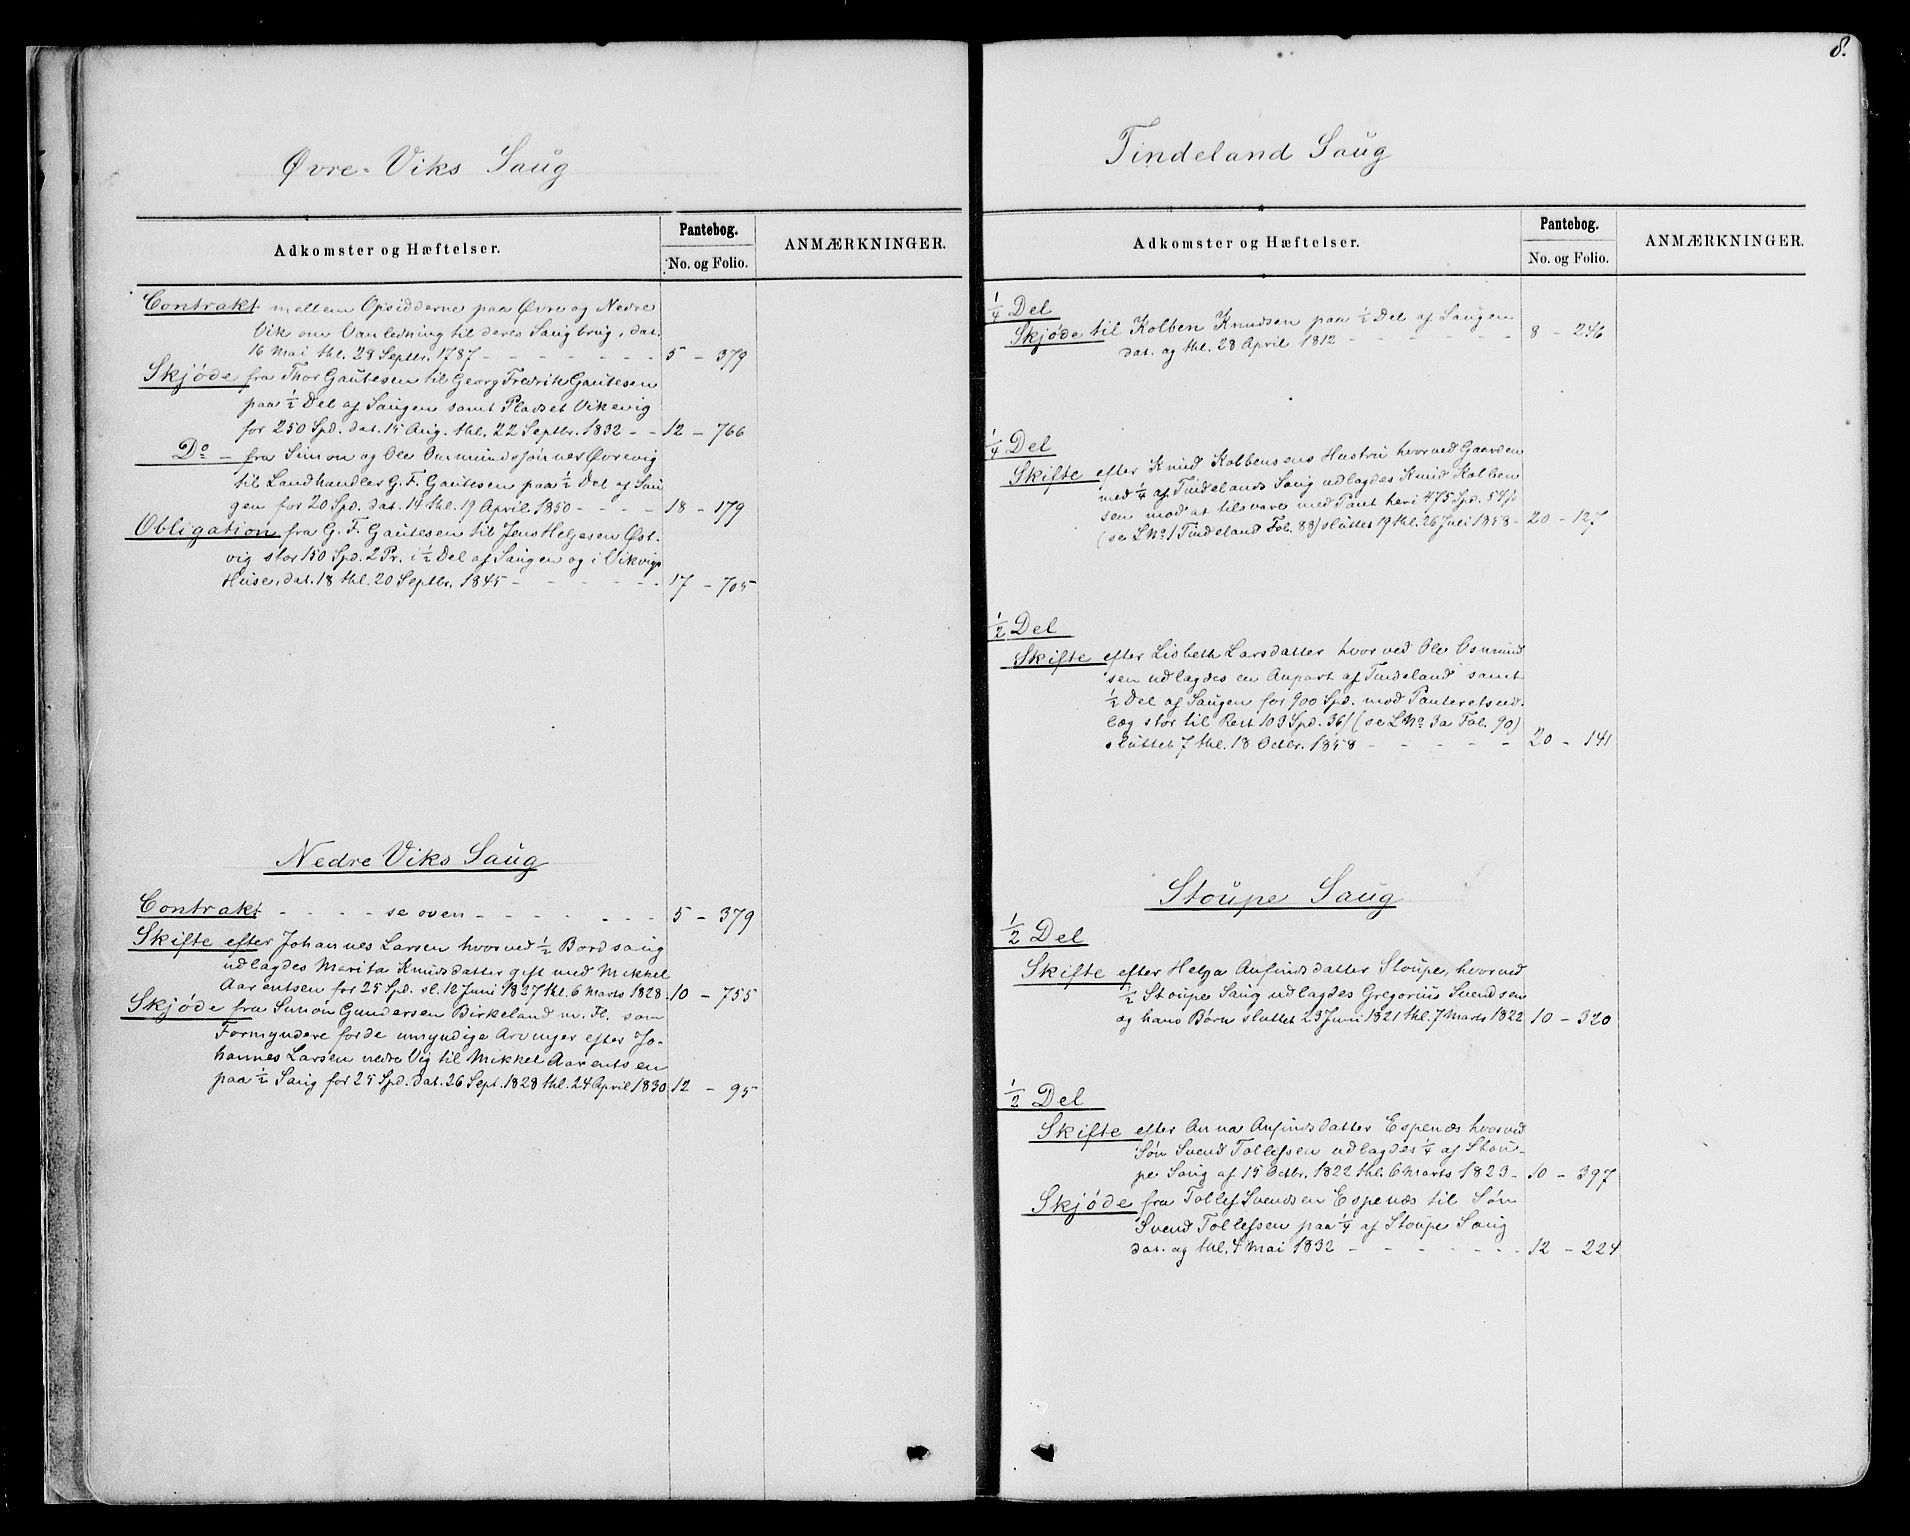 Øvre-Viks Saug
Adkomster og Hæftelser.
Pantebog.
No. og Folio.
ANMÆRKNINGER.
Contrakt mellem Opsidderne paa Øvre og Nedre
Vik om Vanledning til deres Saugbrug, dat.
16 Mai thl. 28 Septbr. 1787 - - - - - - 5 - 379
Skjøde fra Thor Gautesen til Georg Fredrik Gautesen
paa 1/2 Del af Saugen samt Pladset Vikevig
for 250 Spd. dat. 15 Aug. thl. 22 Septbr. 1832 - - 12 - 766
Do - fra Simon og Ole Osmundsønner Øvrevig
til Landhandler G. F. Gautesen paa 1/2 Del af Sau
gen for 20 Spd. dat. 14 thl. 19 April 1850 - - - - 18 - 179
Obligation fra G. F. Gautesen til Jens Helgesen Øst-
vig stor 150 Spd. 2 Pr. i 1/2 Del af Saugen og i Vikvigs
Huse, dat. 18 thl. 20 Septbr. 1845 - - - - - - 17 - 705
Nedre Viks Saug
Contrakt - - - - se oven - - - - - - - 5 - 379
Skifte efter Johannes Larsen hvorved 1/2 Bordsaug
udlagdes Marita Knudsdatter gift med Mikkel
Aarentsen for 25 Spd. sl. 12 Juni 1827 thl. 6 Marts 1828. 10 - 755
Skjøde fra Simon Gundersen Birkeland m. Fl. som
Formyndere for de umyndige Arvinger efter Jo-
hannes Larsen nedre Vig til Mikkel Aarentsen
paa 1/2 Saug for 25 Spd. dat. 26 Sept. 1828 thl. 24 April 1830 12 - 95
8.
Tindeland Saug
Adkomster og Hæftelser.
Pantebog.
No. og Folio.
ANMÆRKNINGER.
1/4 Del
Skjøde til Kolben Knudsen paa 1/2 Del af Saugen
dat. og thl. 28 April 1812 - - - - - - 8 - 246
1/4 Del
Skifte efter Knud Kolbensens Hustru hvorved Gaarden
med 1/4 af Tindelands Saug udlagdes Knud Kolben
sen mod at tilsvare med Pant heri 475 Spd. 54 ß
(se L№ 1 Tindeland Fol. 88) sluttet 19 thl. 26 Juli 1858 - 20 - 127
1/2 Del
Skifte efter Lisbeth Larsdatter hvorved Ole Osmund
sen udlagdes en Anpart af Tindeland samt
1/2 Del af Saugen for 900 Spd. mod Panteretsud.
læg stor til Rest 103 Spd. 36 ß (se L№ 3a Fol. 90)
sluttet 7 thl. 18 Octbr. 1858 - - - - - 20 - 141
Stoupe Saug
1/2 Del
Skifte efter Helga Anfindsdatter Stoupe, hvorved
1/2 Stoupe Saug udlagdes Gregorius Svendsen
og hans Børn sluttet 23 Juni 1821 thl. 7 Marts 1822 10 - 320
1/2 Del
Skifte efter Anna Anfindsdatter Espenæs hvorved
Søn Svend Tollefsen udlagdes 1/4 af Stou-
pe Saug af 15 Octbr. 1822 thl. 6 Marts 1823 - 10 - 397
Skjøde fra Tollef Svendsen Espenæs til Søn
Svend Tollefsen paa 1/4 af Stoupe Saug
dat. og thl. 4 Mai 1832 - - - - - - - 12 - 224